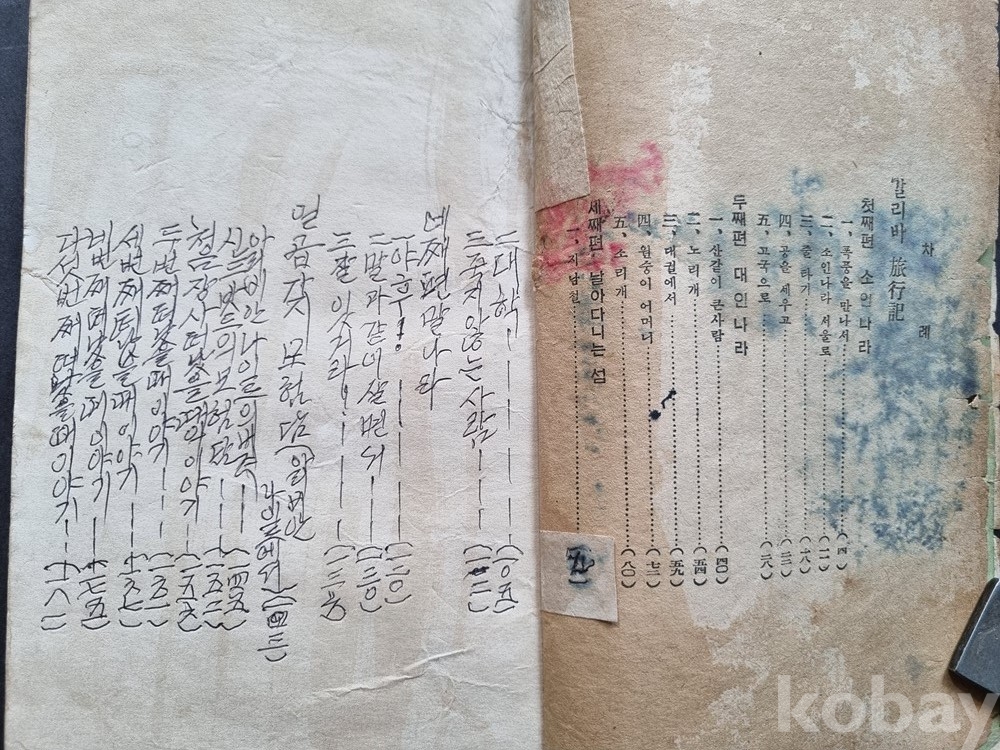 차 례
걸리바 旅行記
첫째편 소인나라
一, 폭풍을 만나서 (四)
二, 소인나라 서울로 (一一)
三, 줄타기 (一八)
四, 공을 세우고 (二二)
五, 고국으로 (二八)
두째편 대인나라
一, 산같이 큰사람 (四〇)
二, 노리개 (五四)
三, 대궐에서 (五九)
四, 원숭이 어머니 (七二)
五, 소리개 (八〇)
세째편 날아다니는 섬
一, 지남철
二 대학 (一〇五)
三 죽지 않는 사람
네째편 말나라
一 야후 (一二〇)
二 말과 같이 살면서 (一三〇)
三 잘 있거라
일곱가지 모험담 (알버안
나일에서) (一四三)
알래비안 나일의
신드밧드의 모험담 (一四五)
첨 장사 떠났을 때의 이야기 (一五二)
두번째 떠났을 때 이야기
세번째 떠났을 때 이야기
네번째 떠났을 때 이야기 (一七五)
다섯번째 떠났을 때 이야기 (一八二)
kobay